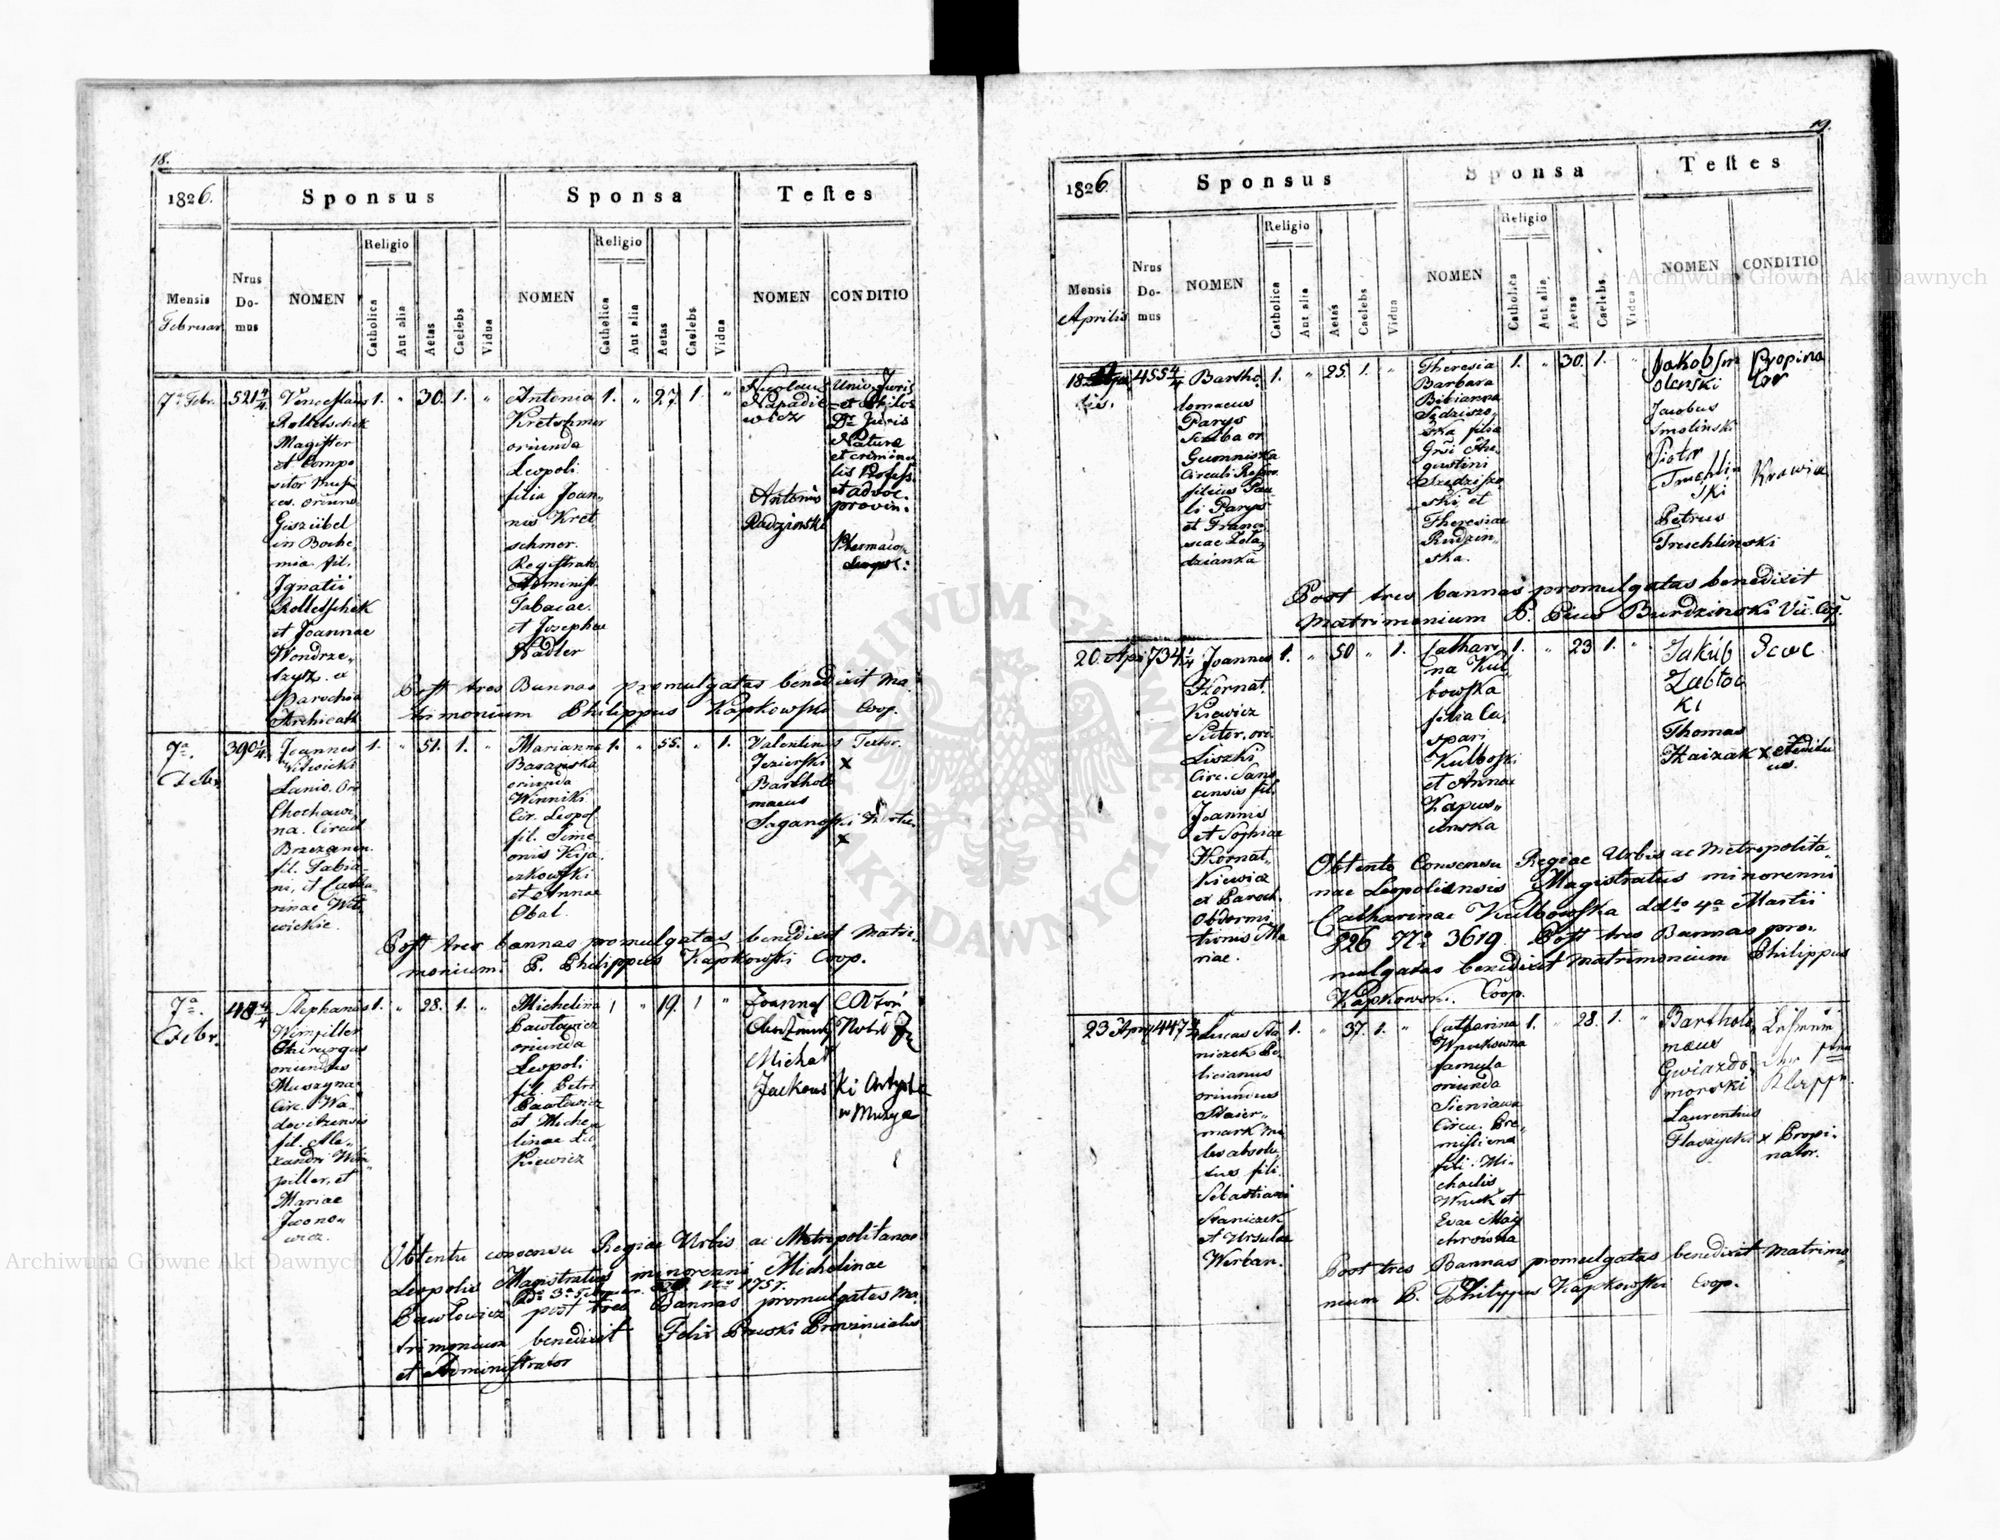 18.
1826.
Sponsus
Sponsa
Testes
Mensis
Februar
Nrus
Do-
mus
NOMEN
Religio
Catholica
Aut alia
Aetas
Caelebs
Vidua
NOMEN
Religio
Catholica
Aut alia
Aetas
Caelebs
Vidua
NOMEN
CONDITIO
7a Febr.
521 4/4
Venceslaus
Rolletschek
Magister
et Compo
sitor
in Bohe
mia. fil.
Ignatii
Rolletschek
et Joannae
Wondrze,
ex
Parochia
Archicath
1. " 30. 1. "
Antonia
Kretschmer
oriunda
Leopoli
filia Joan,
nis Kret
schmer.
Registrat.
Administ.
Tabacae.
et Josephae
Nadler
1. " 27. 1. "
Nicolaus
Napadie
wicz
Univ. Juris
et Philos
Dr Juris
Naturae
et crimina
lis Profess.
et advoc.
provin.
Antonius
Radziński
Pharmacop.
Leopol:
Post tres Bannas promulgatas benedixit Ma,
trimonium Philippus Kapkowski Coop.
7a
Febr.
390 1/4
Joannes
Witwicki
Lanio. Ori
Chochawi,
na. Circul
Brzezanen.
fil. Fabia-
ni, et Catha,
rinae Wit
wickie.
1. " 51. 1. "
Marianna
Baranska
oriunda
Winniki
Cir. Leopol
fil. Sime
onis Kija
czkowski
et Annae
Obal.
1. " 55. " 1.
Valentinus
Jezierski
Textor.
x
Bartholo
maeus
Saganoski
x
Post tres bannas promulgatas benedixit Matri,
monium P. Philippus Kapkowski Coop.
7a
Febr.
48 4/4
Stephanus
Wimpiller
Chirurgus
oriundus
Muszyna
Circ. Wa,
dovicensis
fil. Ale,
xandri Wim,
piller, et
Mariae
Iwono,
wicz.
1. " 28. 1. "
Michelina
Pawlowicz
oriunda
Leopoli
fil. Petri
Pawlowicz
et Miche
linae
1 " 19. 1 "
Joannes
Michał
Jackows
ki Artysta
w Muzyce
Obtento consensu Regiae Urbis ac Metropolitanae
Leopolis Magistratus minorenni Michelinae
Ddo 3a Februar. 826. Nro 1757.
Pawlowicz post tres Bannas promulgatas Ma,
trimonium benedixit Felix Provincialis
et Administrator
19.
1826
Sponsus
Sponsa
Testes
Mensis
Aprilis
Nrus
Do-
mus
NOMEN
Religio
Catholica
Aut alia
Aetas
Caelebs
Vidua
NOMEN
Religio
Catholica
Aut alia.
Aetas
Caelebs
Vidua
NOMEN
CONDITIO
18.
lis.
455 4/4
Bartho
lomaeus
Parys
Scriba or
Gumniska
Circuli
filius Pau,
li Parys
et Franci
scae
dzianka
1. " 25. 1. "
Theresia
Barbara
Bibianna
ska filia
gustini
ski et
Theresiae
Rudzin,
ska.
1. " 30. 1. "
Jakob Sm
olenski
Propina
tor
Jacobus
Smolinski
Piotr
Trechlin
ski
Krawiec
Petrus
Trechlinski
Post tres bannas promulgatas benedixit
Matrimonium P. Pius Burdzinski Vic. Coop.
20. Apr
734 1/4
Joannes
Kornat,
kiewicz
Sutor. ori.
Liszki
Circ. San,
censis fil.
Joannis
et Sophiae
Kornat,
kiewicz
ex Paroch.
Obdormi
tionis Ma
riae.
1. " 50 " 1.
Cathari
na Kul
bowska
filia Ca,
spari
Kulboski
et Annae
Kapus,
cinska
1. " 23 1. "
Jakób
Zabłoc
ki
Szewc
Thomas
Kaizak
x Aeditu
us.
Obtento Consensu Regiae Urbis ac Metropolita,
nae Leopoliensis Magistratus minorenni
Catharinae Kulbowska ddto 4a Martii
826 Nro 3619. Post tres Bannas pro,
mulgatas benedixit Matrimonium Philippus
Kapkowski. Coop.
23 Apr
447 4/4
Lucas Sta
niczek Po,
licianus
oriundus
Staier,
mark mi
les absolu
tus fili.
Sebastiani
Staniczek
et Ursulae
Werban.
1. " 37. 1. "
Catharina
Wruckowna
famula
oriunda
Sieniawa
Circu. Pre,
misliena
fili. Mi,
chaelis
Wruck et
Evae May
chrowska
1. " 28. 1. "
Bartholo
maeus
Gwiazdo,
morski
Laurentius
Flaszycki
x Propi,
nator.
Post tres Bannas promulgatas benedixit Matrimo,
nium P. Philippus Kapkowski Coop.
Archiwum Główne Akt Dawnych
Archiwum Główne Akt Dawnych
ARCHIWUM GŁÓWNE AKT DAWNYCH